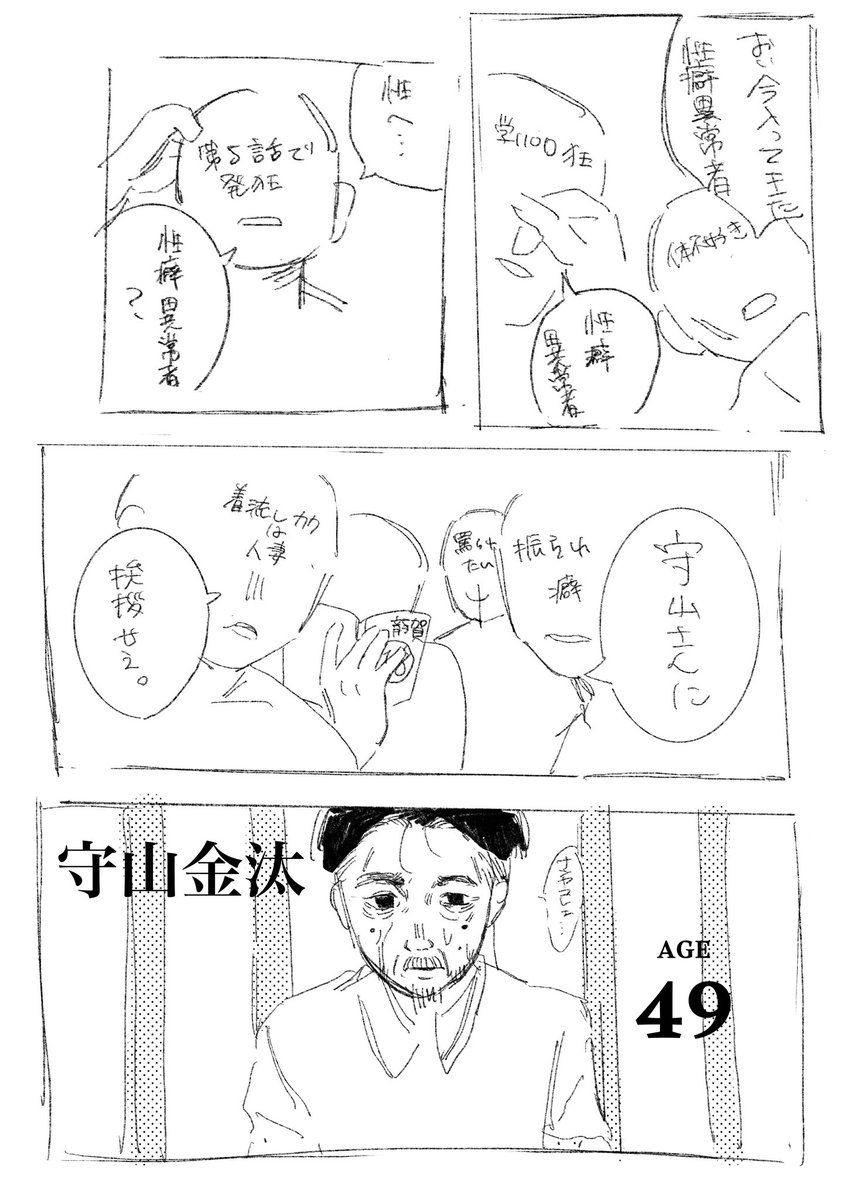 おい今入ってきた
性癖異常者
体不やき
学パロ狂
性癖
異常者
性へ…
第5話で
発狂
性癖異常者
?
守山さんに
振られ
癖
罵られ
たい
着流しカカ
は
人妻
挨拶せえ。
守山金汰
AGE
49